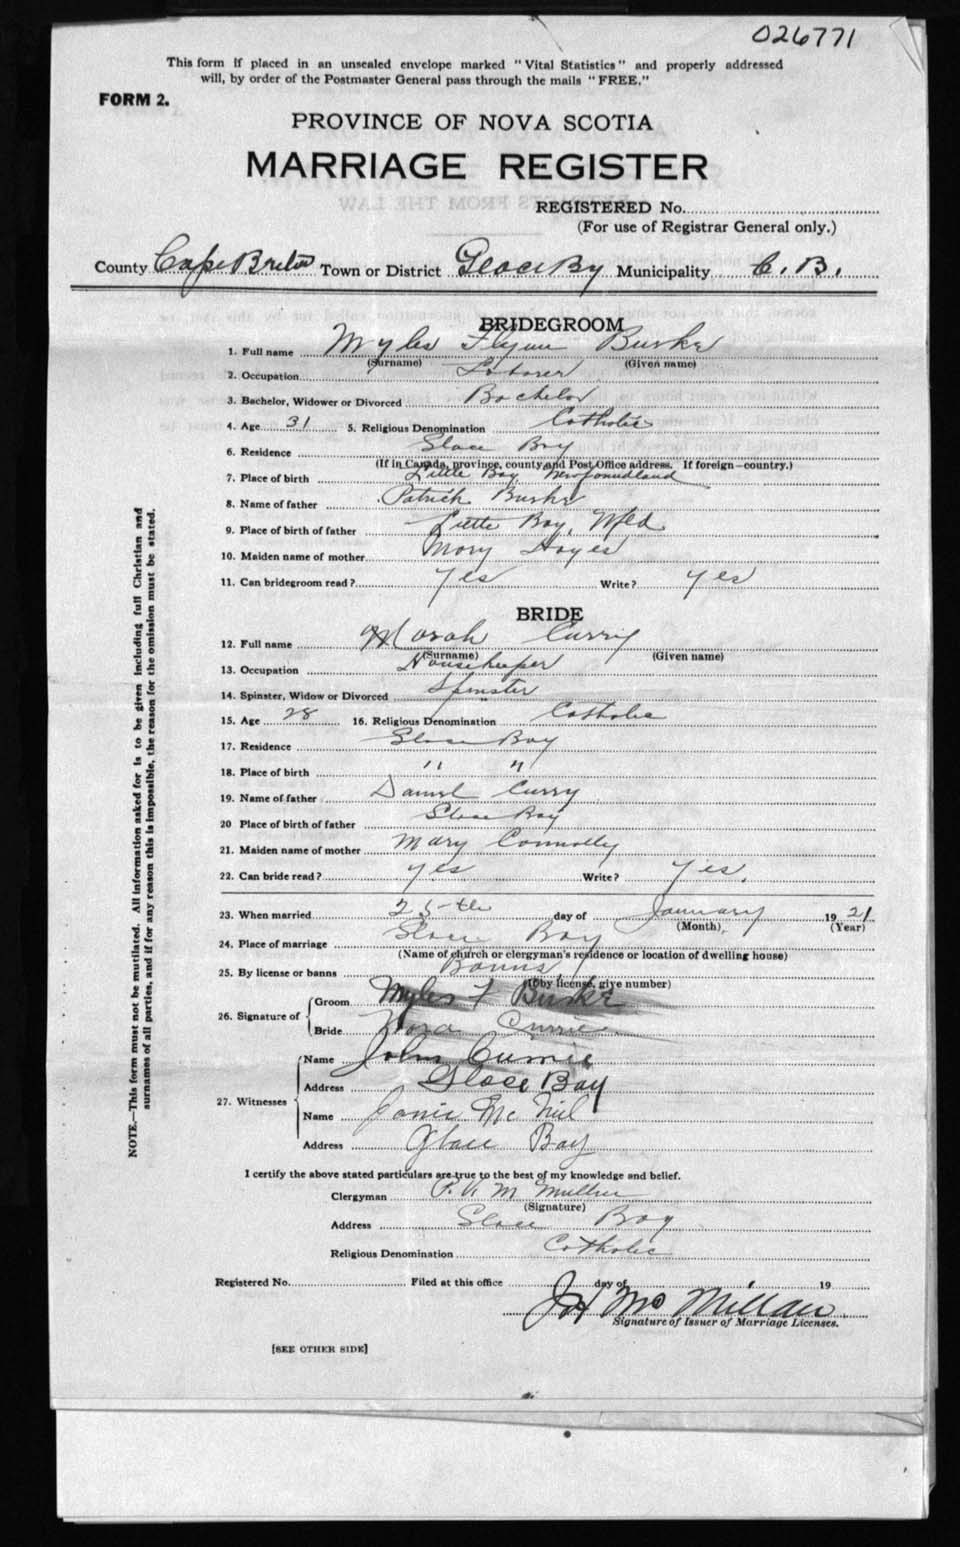 026771
This form if placed in an unsealed envelope marked "Vital Statistics" and properly addressed
will, by order of the Postmaster General pass through the mails "FREE."
FORM 2.
PROVINCE OF NOVA SCOTIA
MARRIAGE REGISTER
REGISTERED No.
(For use of Registrar General only.)
County Cape Breton Town or District Glace By Municipality C. B.
BRIDEGROOM
1. Full name Myles Flynn Burke
(Surname) (Given name)
2. Occupation Laborer
3. Bachelor, Widower or Divorced Bachelor
4. Age 31 5. Religious Denomination Catholic
6. Residence Glace Bay
(If in Canada, province, county and Post Office address. If foreign—country.)
7. Place of birth Little Bay Newfoundland
8. Name of father Patrick Burke
9. Place of birth of father Little Bay, Nfld
10. Maiden name of mother Mary Hayes
11. Can bridegroom read? Yes Write? Yes
BRIDE
12. Full name Norah Curry
(Surname) (Given name)
13. Occupation Housekeeper
14. Spinster, Widow or Divorced Spinster
15. Age 28 16. Religious Denomination Catholic
17. Residence Glace Bay
18. Place of birth " "
19. Name of father Daniel Curry
20 Place of birth of father Glace Bay
21. Maiden name of mother Mary Connolly
22. Can bride read? yes Write? Yes.
23. When married 25th day of January 1921
(Month) (Year)
24. Place of marriage Glace Bay
(Name of church or clergyman's residence or location of dwelling house)
25. By license or banns Banns
(If by license, give number)
26. Signature of
Groom Myles F Burke
Bride Nora Currie
27. Witnesses
Name John Currie
Address Glace Bay
Name Mc Neil
Address Glace Bay
I certify the above stated particulars are true to the best of my knowledge and belief.
Clergyman
(Signature)
Address Glace Bay
Religious Denomination Catholic
Registered No. Filed at this office day of 19
J H Mc Millan
Signature of Issuer of Marriage Licenses.
[SEE OTHER SIDE]
NOTE.—This form must not be mutilated. All information asked for is to be given including full Christian and
surnames of all parties, and if for any reason this is impossible, the reason for the omission must be stated.